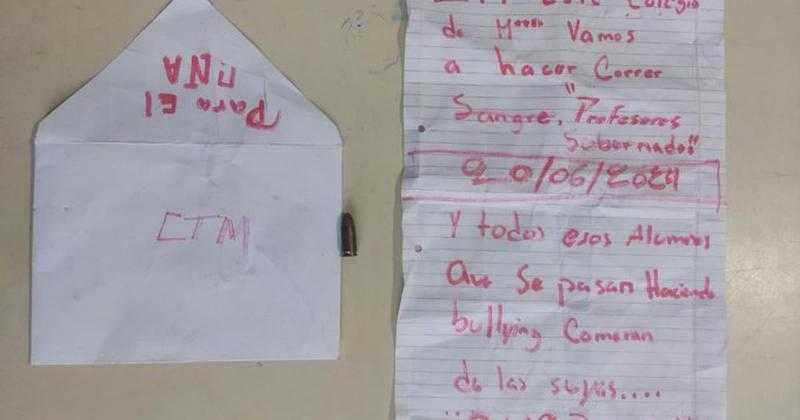 Para El
UNA
CTM
Colegio
de M**** Vamos
a hacer Correr
Sangre, "Profesores
Sobornados"
20/06/2024
Y todos esos Alumnos
Que Se pasan Haciendo
bullying Comeran
de las suyas....